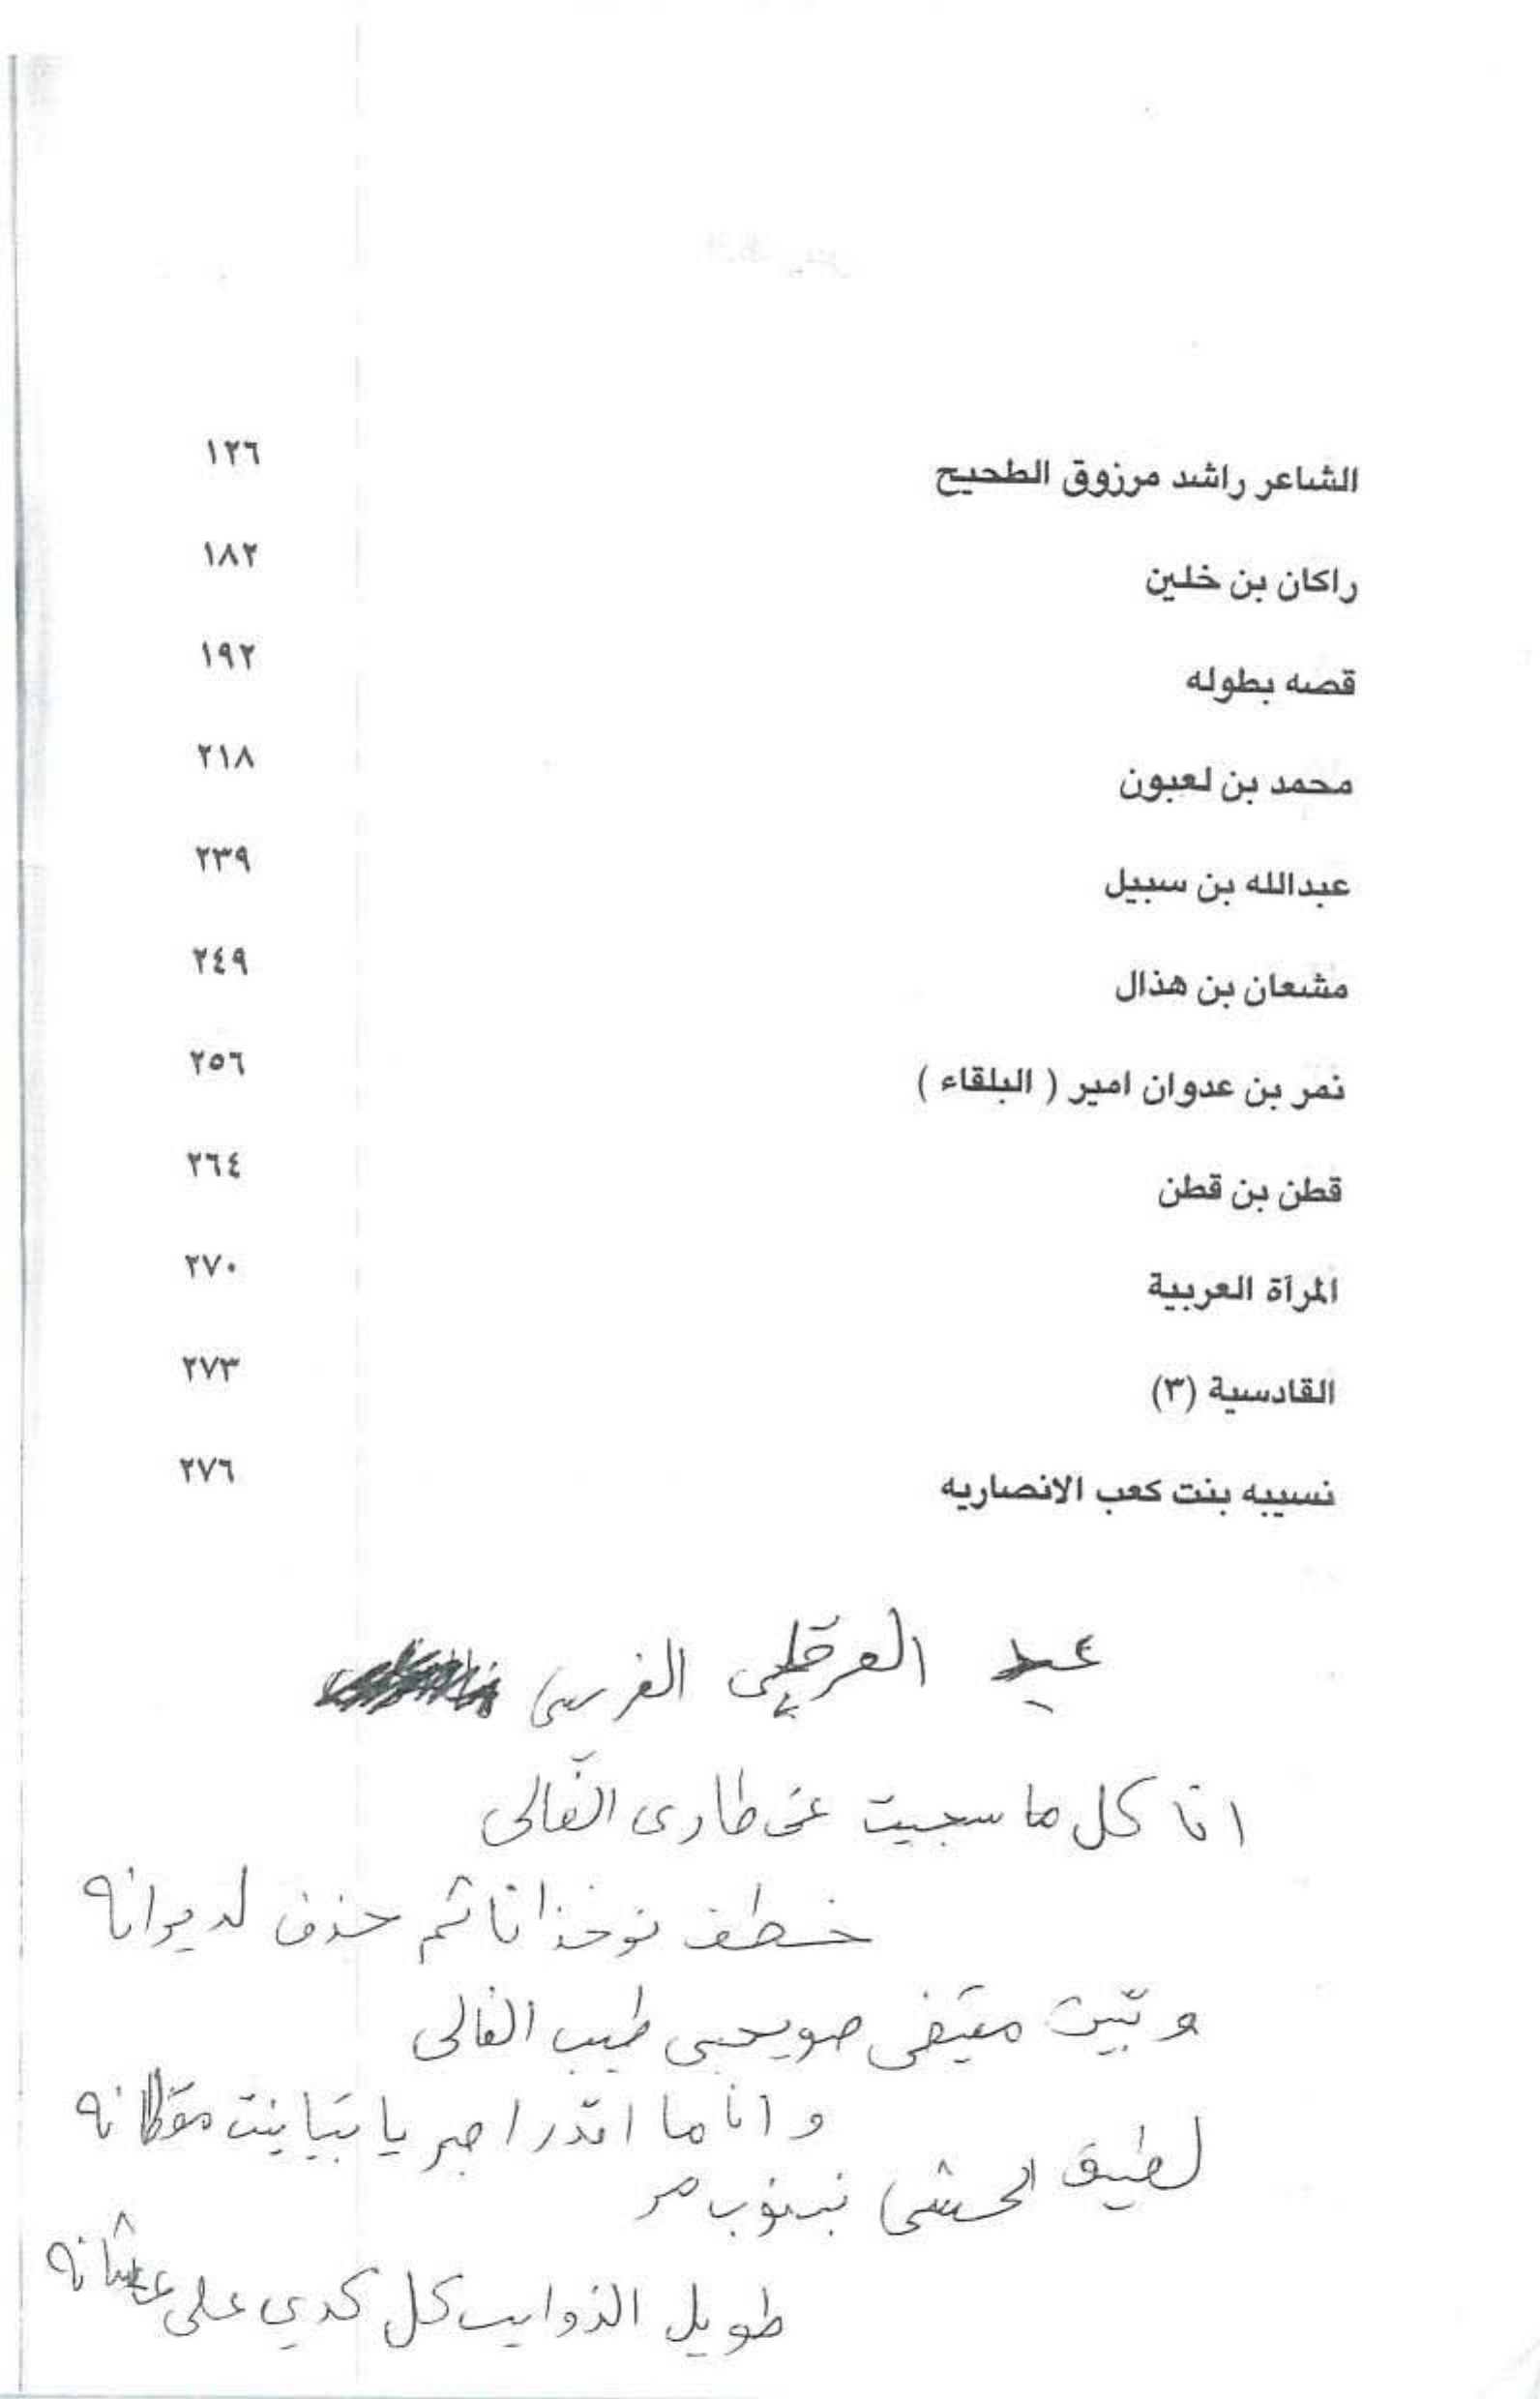 الشاعر راشد مرزوق الطحيح ١٢٦
راكان بن خلين ١٨٢
قصه بطوله ١٩٢
محمد بن لعبون ٢١٨
عبدالله بن سبيل ٢٣٩
مشعان بن هذال ٢٤٩
نمر بن عدوان امير ( البلقاء ) ٢٥٦
قطن بن قطن ٢٦٤
المرآة العربية ٢٧٠
القادسية (٣) ٢٧٣
نسيبه بنت كعب الانصاريه ٢٧٦
عيد
انا كل ما سجيت عن طارى الغالى
خطف نوخذانا ثم حذف لديوانه
صويحبى طيب الفالى
وانا ما اقدر اصبر يا
لطيف الحشى
طويل الذوايب كل كدي على عشانه